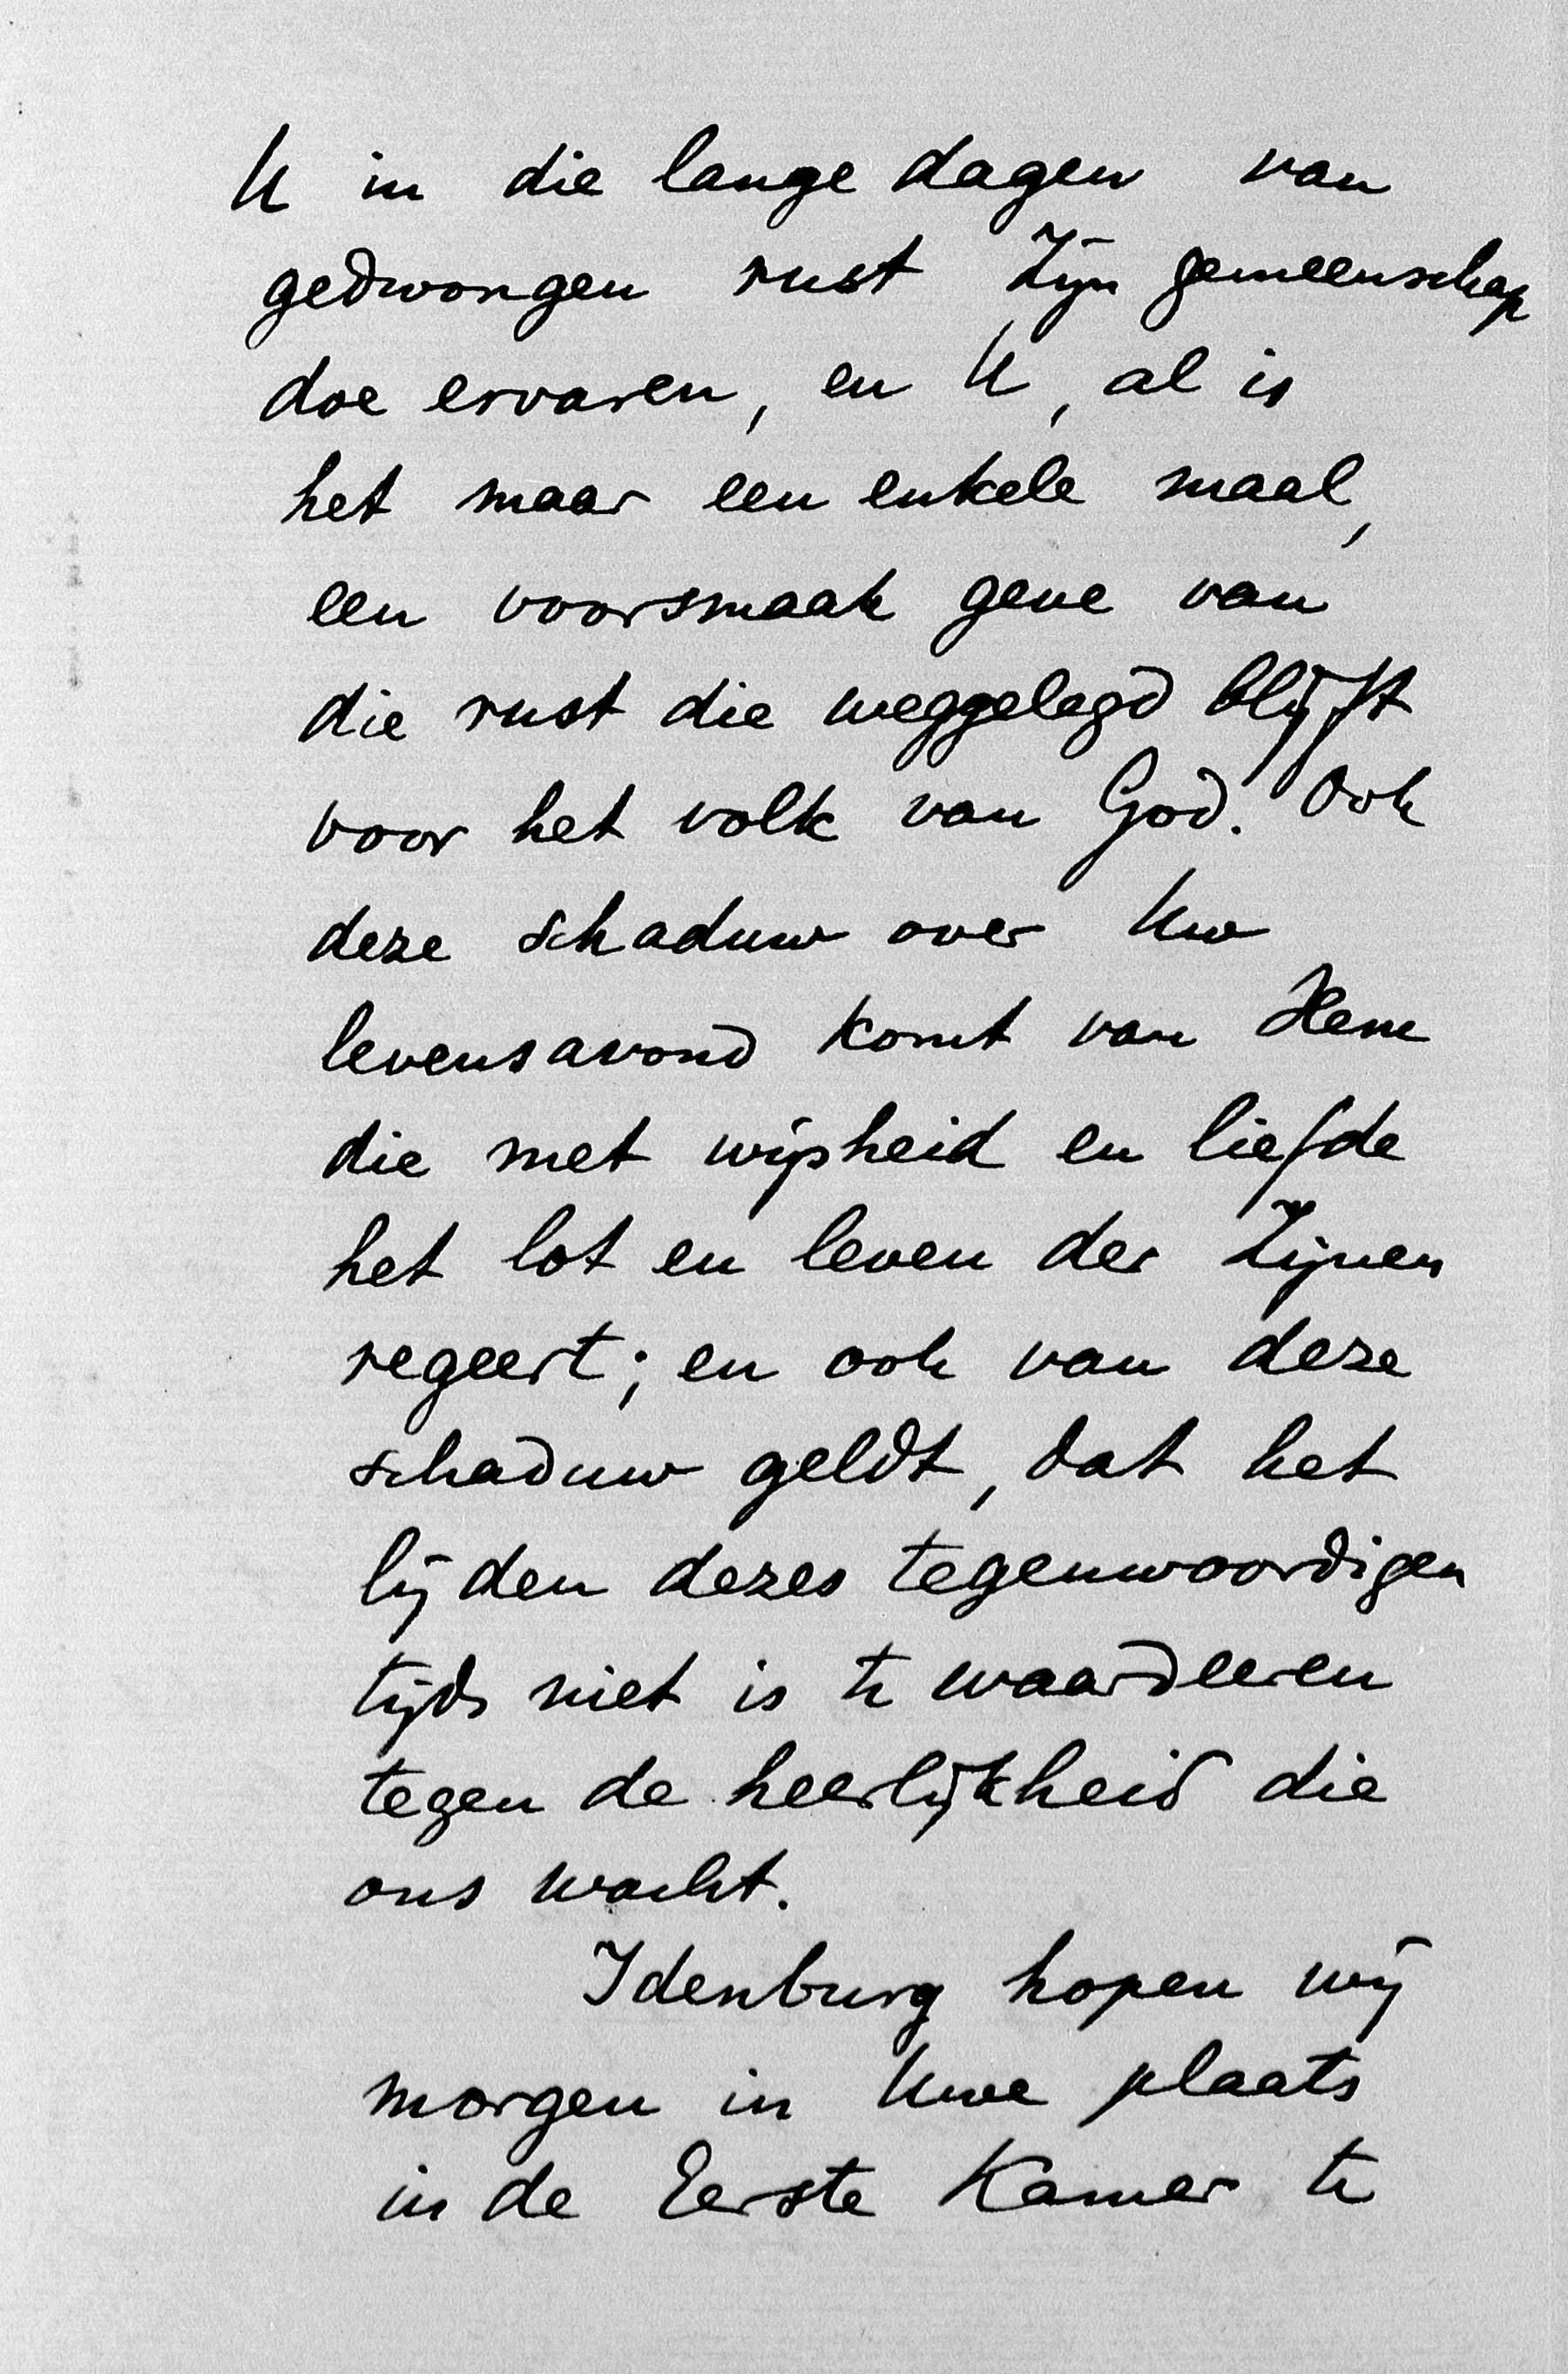 U in die lange dagen van
gedwongen rust Zijn gemeenschap
doe ervaren, en U, al is
het maar een enkele maal,
een voorsmaak geve van
die rust die weggelegd blijft
voor het volk van God. Ook
deze schaduw over Uw
levensavond komt van Hem
die met wijsheid en liefde
het lot en leven der Zijnen
regeert; en ook van deze
schaduw geldt, dat het
lijden dezes tegenwoordigen
tijds niet is te waardeeren
tegen de heerlijkheid die
ons wacht.
Idenburg hopen wij
morgen in Uwe plaats
in de Eerste Kamer te